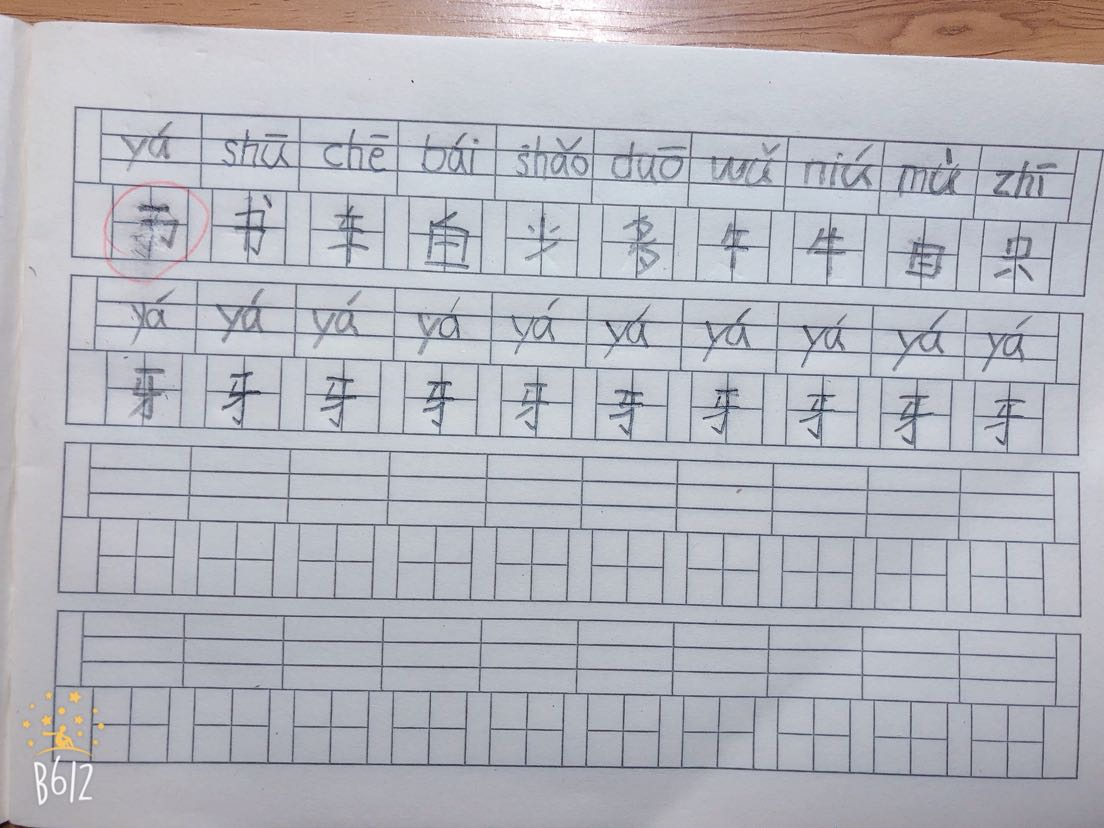 yá shū chē bái shǎo duō wǔ niú mù zhī
书 车 白 少 多 午 牛 目 只
yá yá yá yá yá yá yá yá yá yá
牙 牙 牙 牙 牙 牙 牙 牙 牙 牙
B612